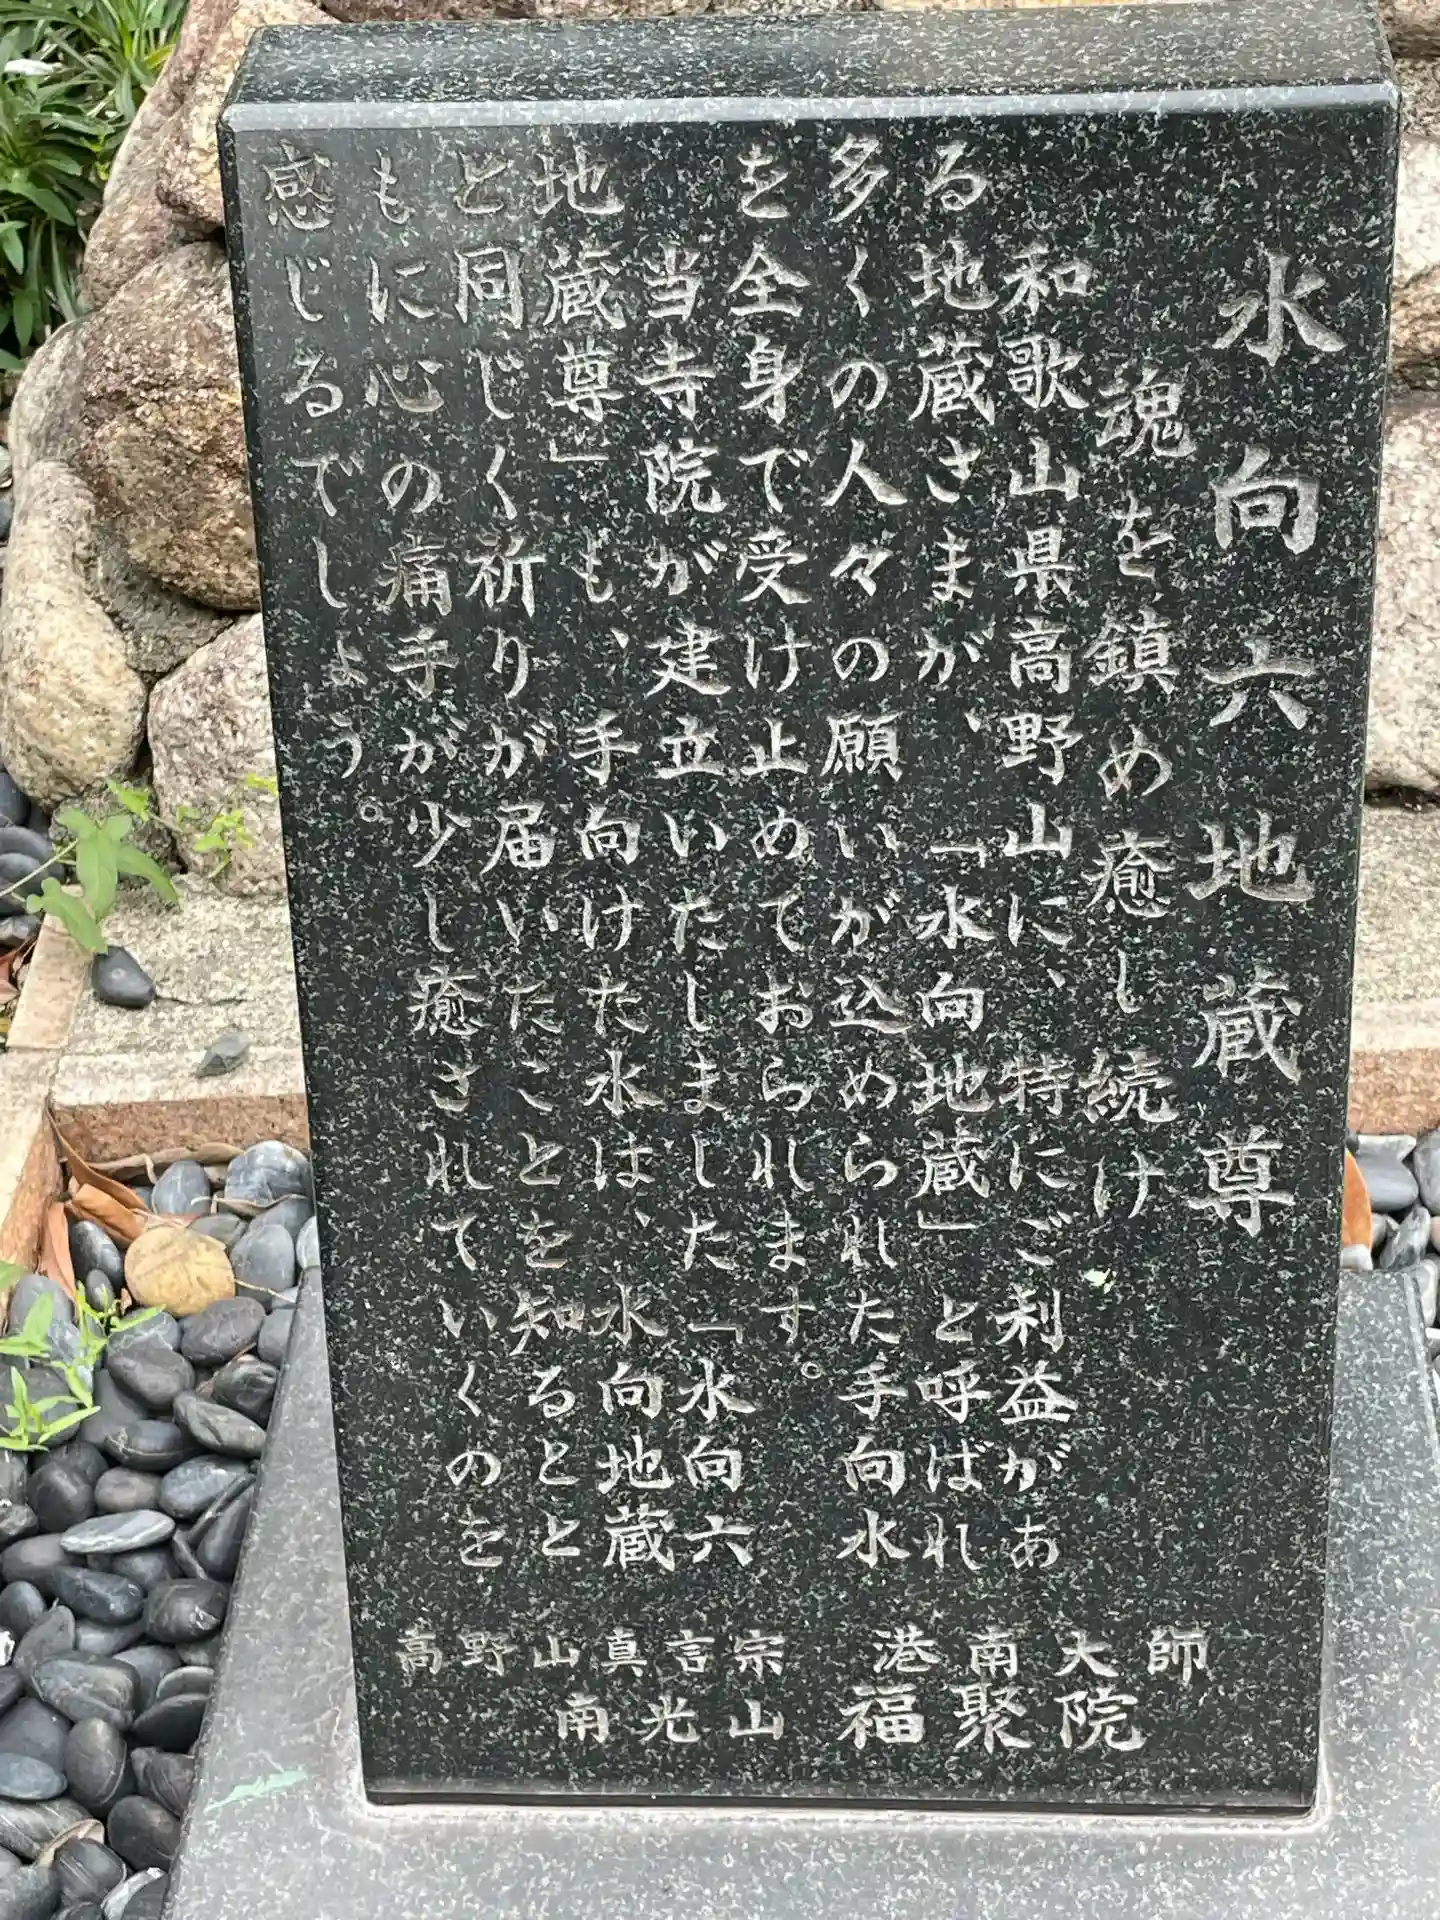 水向六地蔵尊
魂を鎮め癒し続け
和歌山県高野山に、特にご利益があ
る地蔵さまが、「水向地蔵」と呼ばれ
多くの人々の願いが込められた手向水
を全身で受け止めておられます。
当寺院が建立いたしました「水向六
地蔵尊」も、手向けた水は、水向地蔵
と同じく祈りが届いたことを知るとと
もに心の痛手が少し癒されていくのを
感じるでしょう。
高野山真言宗 港南大師
南光山 福聚院